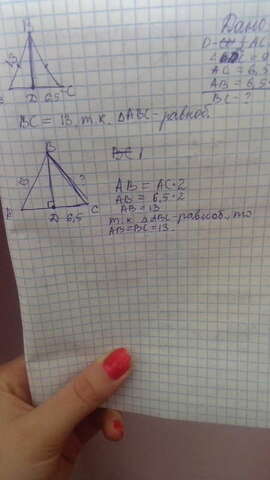 B
D 6,5 C
Дано
AC = 6,5
AB = 6,5
BC - ?
BC = 13, т.к. △ABC - равноб.
B
D 6,5 C
AB = AC · 2
AB = 6,5 · 2
AB = 13
т.к. △ABC - равноб, то
AB = BC = 13.